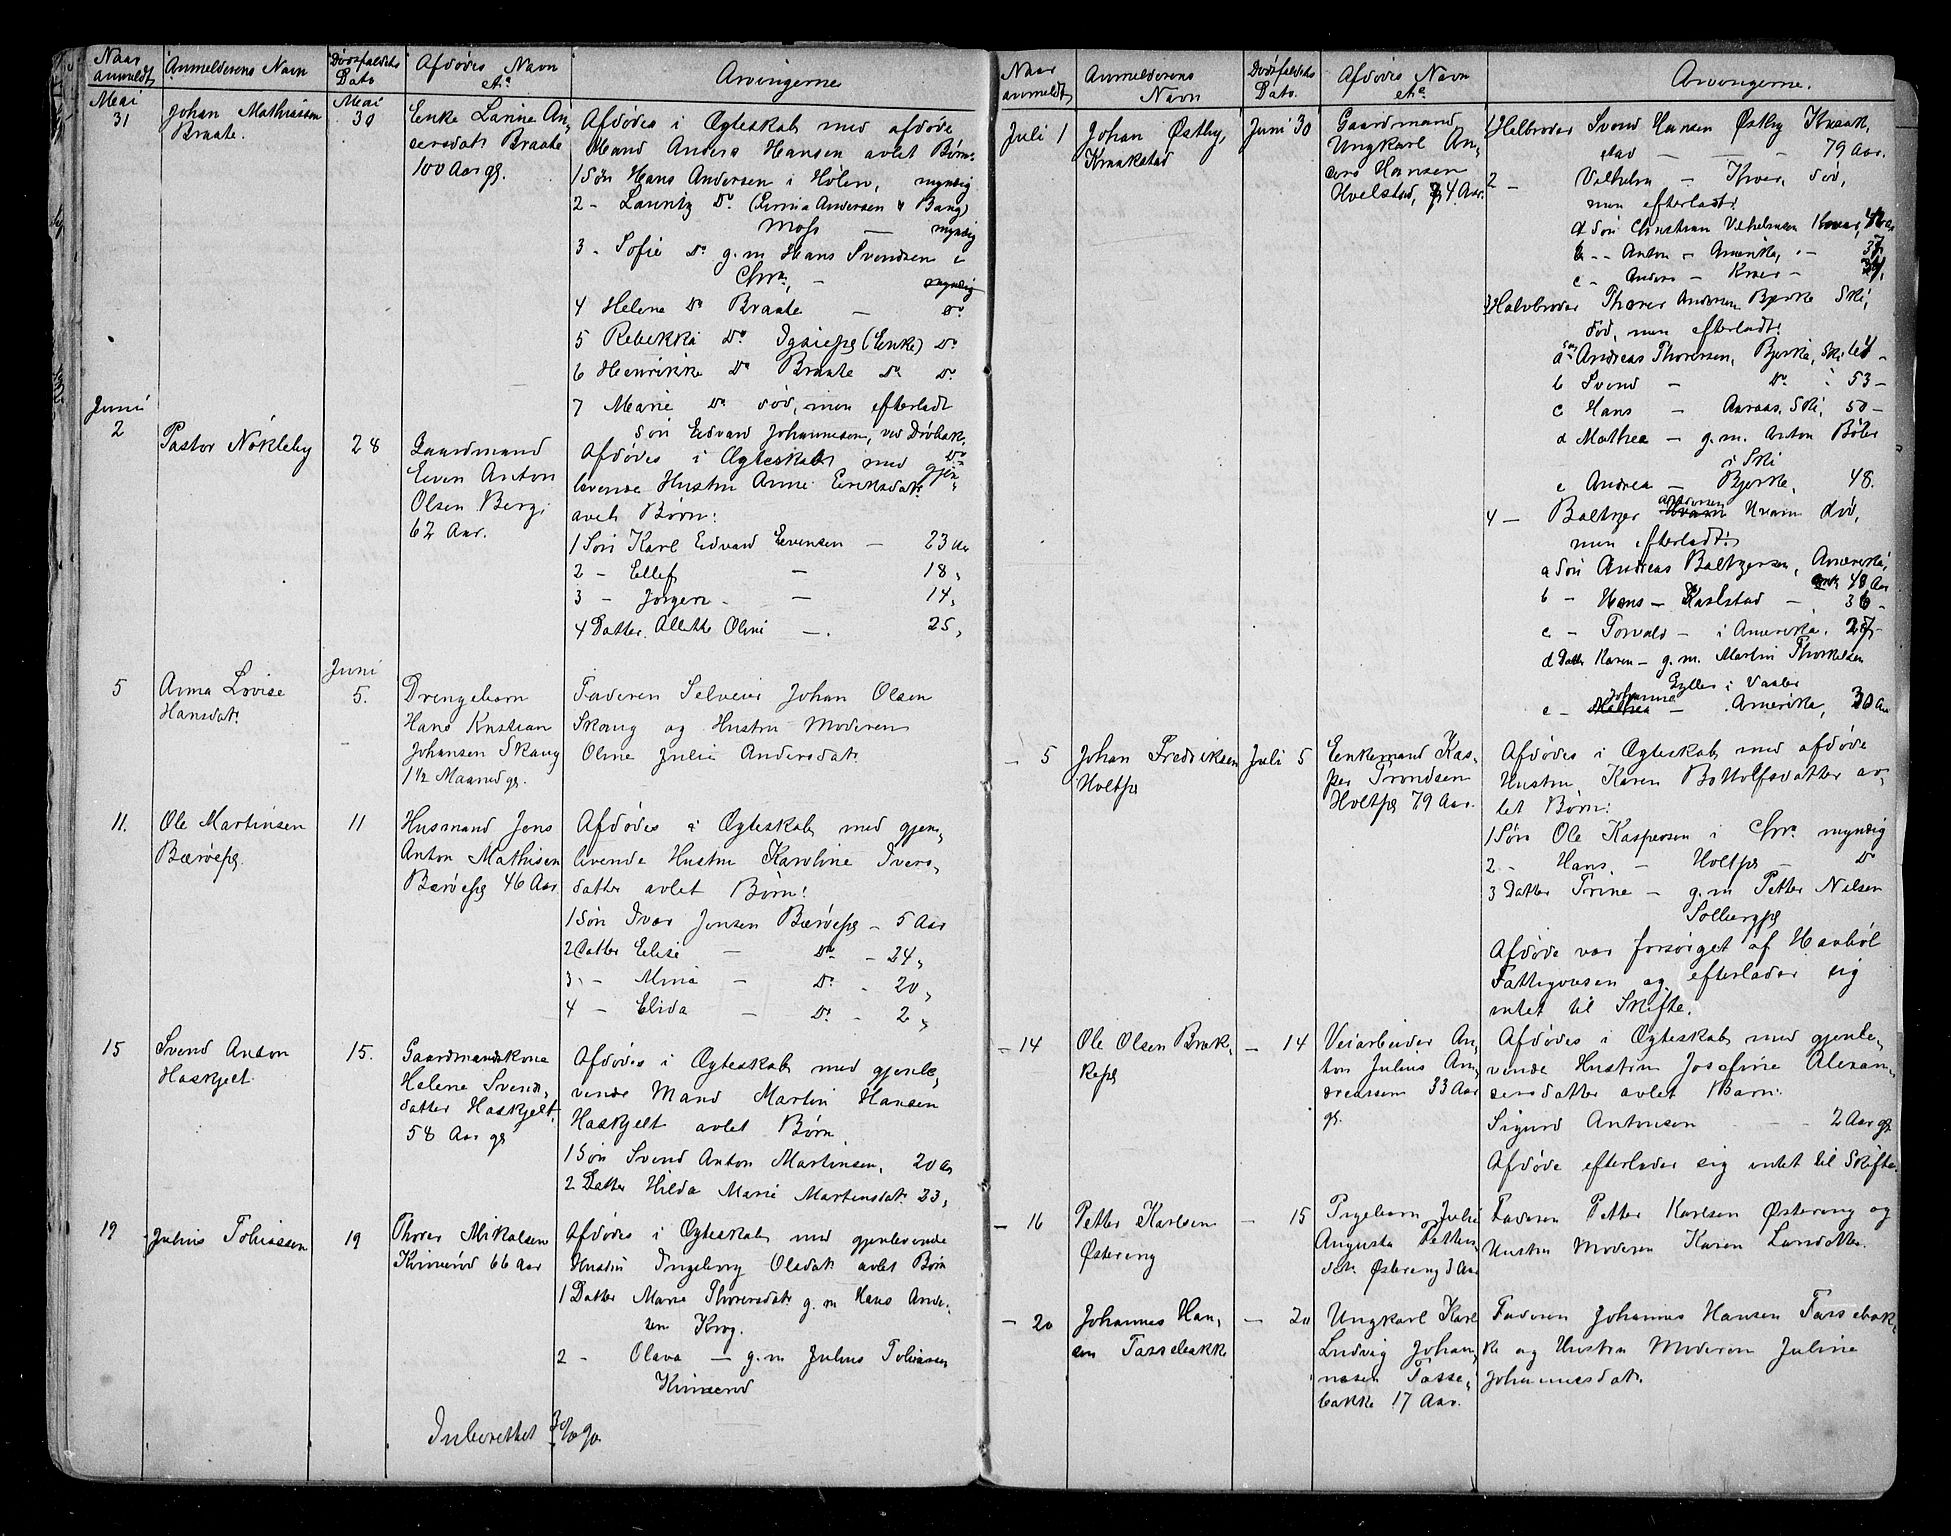 Naar anmeldt
Anmelderens Navn
Dødsfaldets Dato
Afdødes Navn etc
Arvingerne
Mai 31
Johan Mathiassen
Braate.
Mai 30
Enke Larine An-
dersdatr Braate
100 Aar gl.
Afdødes i Ægteskab med afdøde
Mand Anders Hansen avlet Børn:
1 Søn Hans Andersen i Holen, myndig
2 - Laurentz Do (Firma Andersen & Bang)
Moss — myndig
3 - Sofie Do g.m. Hans Svendsen i
Chra, - myndig
4 Helene Do Braate — Do
5 Rebekka Do (Enke) Do
6 Henrikke Do Braate Do Do
7 Marie Do død, men efterladt
Søn Edvard Johannesen, ved Drøbak,
Do
Juni 2
Pastor Nökleby
28
Gaardmand
Even Anton
Olsen Berg,
62 Aar.
Afdødes i Ægteskab med gjen-
levende Hustru Anne Eriksdatr
avlet Børn:
1 Søn Karl Edvard Evensen — 23 Aar
2 - Ellef — 18 "
3 - Jørgen — 14 "
4 Datter Alette Oline — 25 "
5
Anna Lovise
Hansdatr
Juni 5.
Drengebarn
Hans Kristian
Johansen Skaug
1½ Maaned gl.
Faderen Selveier Johan Olsen
Skaug og Hustru Moderen
Oline Julie Andersdatr
11.
Ole Martinsen
Bærøepl.
11
Husmand Jens
Anton Mathisen
Bærøepl 46 Aar.
Afdødes i Ægteskab med gjen-
levende Hustru Karoline Ivers-
datter avlet Børn:
1 Søn Ivar Jensen Bærøepl - 5 Aar
2 Datter Elise — Do - 24 "
3 - Mina — Do - 20 "
4 - Elida — Do - 2 "
15
Svend Anton
Haskjelt
15.
Gaardmandskone
Helene Svends-
datter Haskjelt
58 Aar gl
Afdødes i Ægteskab med gjenle-
vende Mand Martin Hansen
Haskjelt avlet Børn.
1 Søn Svend Anton Martinsen, 20 Aar
2 Datter Hilda Marie Martinsdatr 23 "
19
Julius Tobiassen
19
Thorer Mikalsen
Kinnerød 66 Aar
Afdødes i Ægteskab med gjenlevende
Hustru Ingeborg Olsdatr avlet Børn
1 Datter Marie Thorersdatr g.m. Hans Ander-
sen Krog.
2 - Olava — g.m Julius Tobiassen
Kinnerød
Inberettet
Naar anmeldt
Anmelderens Navn
Dødsfaldets Dato.
Afdødes Navn etc
Arvingerne.
Juli 1
Johan Østby,
Kraakstad
Juni 30
Gaardmand
Ungkarl An-
ders Hansen
Hvelstad, 74 Aar.
1 Helbroder Svend Hansen Østby Kraak-
stad — — 79 Aar.
2 - Vilhelm — død,
men efterladt:
a Søn Christian Vilhelmsen
b - - Anton - Amerika, -
c - Anders -
3 Halvbroder Thorer Andersen Bjerke Ski,
død, men efterladt:
a Søn Andreas Thorersen, Bjerke, Ski 64 -
b Svend - Do - 53 -
c Hans - Aaraas, Ski, 50 -
d Mathea - g.m. Anton Bøler
i Ski
e Andrea - Bjerke, 48.
4 - Baltzer Andersen Hvam død,
men efterladt:
a Søn Andreas Baltzersen, Amerika,
48 Aar
b - Hans - Karlstad - 36 -
c - Torvald - i Amerika. 27 -
d Datter Karen - g.m. Martin Thorkelsen
i Vaaler
e - Johanne - Amerika, 30 Aar
- 5
Johan Fredriksen
Holtpl
Juli 5
Enkemand Kas-
per Trondsen
Holtpl 79 Aar.
Afdødes i Ægteskab med afdøde
Hustru Karen Bottolfsdatter av-
let Børn:
1 Søn Ole Kaspersen i Chra myndig
2 - Hans - Holtpl - Do
3 Datter Trine - g.m Petter Nilsen
Solbergpl
Afdøde var forsørget af Haabøl
Fattigvæsen og efterlader sig
intet til Skifte.
- 14
Ole Olsen Brek-
kepl
- 14
Veiarbeider An-
ton Julius An-
dreassen 33 Aar
gl.
Afdødes i Ægteskab med gjenle-
vende Hustru Josefine Alexan-
dersdatter avlet Barn:
Sigurd Antonsen - - 2 Aar gl
Afdøde efterlader sig intet til Skifte.
- 16
Petter Karlsen
Østereng
- 15
Pigebarn Julie
Augusta Petters-
datr Østereng 3 Aar
Faderen Petter Karlsen Østereng og
Hustru Moderen Karen Larsdatter.
- 20
Johannes Han-
sen Tassebakke
- 20
Ungkarl Karl
Ludvig Johan-
nesen Tasse-
bakke 17 Aar.
Faderen Johannes Hansen Tassebak-
ke og Hustru Moderen Juline
Johannesdatr.